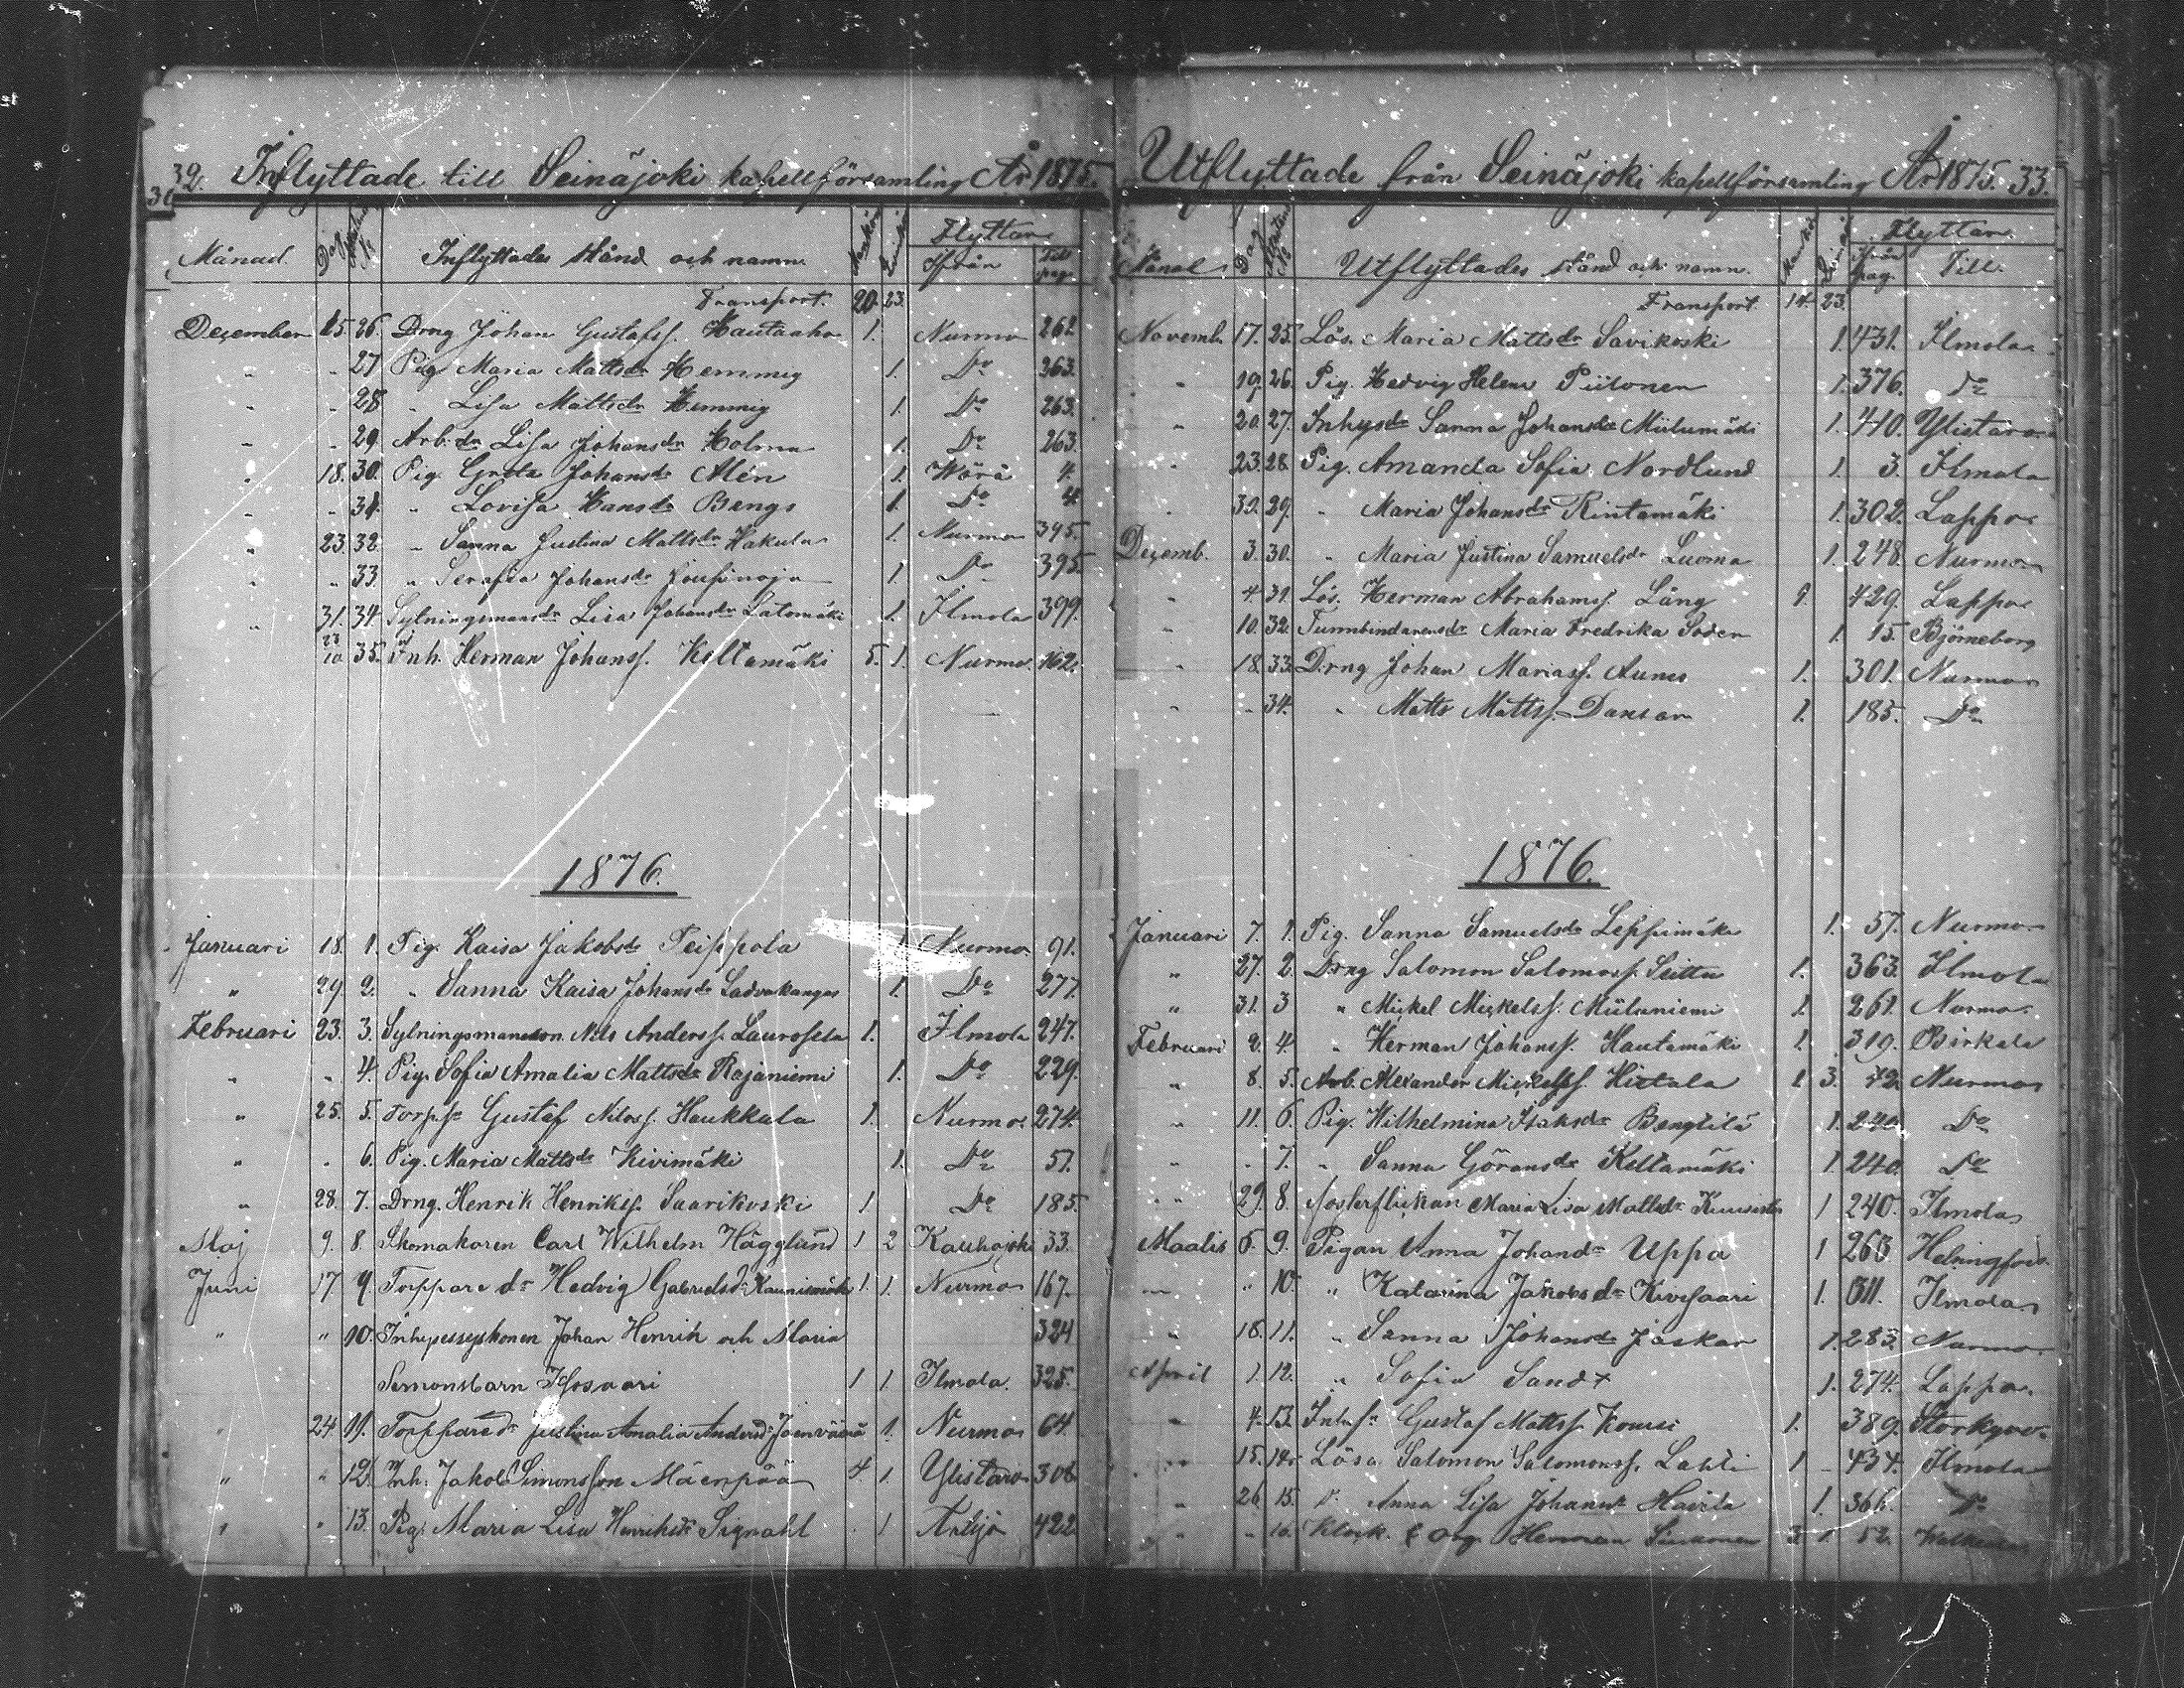 32. Inflyttade till Seinäjoki kapellförsamling År 1875.
30
Månad. Dag Inflyttades stånd och namn. Mankön Qvinkön Flyttar
Ifrån Till pag.
Transport. 20. 23.
December 15. 26. Drng Johan Gustafss. Hautaaho 1. Nurmo 262
" " 27 Pig. Maria Mattsdr Hemmig 1. Do 263.
" " 28 " Lisa Mattsdr Hemmig 1. Do 263.
" " 29. Arb. dr Lisa Johansdr Holma 1. Do 263
" 18. 30. Pig. Greta Johansdr Alén 1. Wörå 4.
" " 31. " Lovisa Hansdr Bengs 1. Do 4.
" 23. 32. " Sanna Justina Mattsdr Hakula 1. Nurmo 395.
" " 33. " Serafia Johansdr 1. Do 395.
" 31. 34. Sytningsmansdr Lisa Johansdr Latomäki 1. Ilmola 399.
35. Inh. Herman Johanss. Keltamäki 5. 1. Nurmo. 162.
1876.
Januari 18. 1. Pig. Kaisa Jakobsdr Peippola 1. Nurmo. 91.
" 29. 2. " Sanna Kaisa Johansdr Ladvakangas 1. Do 277.
Februari 23. 3. Sytningsmansson Nils Anderss. Laurosela 1. Ilmola 247.
" " 4. Pig. Sofia Amalia Mattsdr Rajaniemi 1. Do 229.
" 25. 5. Torpss Gustaf Nilss. Haukkala 1. Nurmo 274.
" " 6. Pig. Maria Mattsdr Kivimäki 1. Do 51.
" 28. 7. Drng. Henrik Henrikss. Saarikoski 1. Do 185.
Maj 9. 8. Skomakaren Carl Wilhelm Hägglund 1 2 Kauhajoki 33.
Juni 17 9. Torppare dr Hedvig Gabrielsdr Kaunismäki 1. 1. Nurmo 167.
" " 10. Inhysessyskonen Johan Henrik och Maria 324
Simonsbarn Isosaari 1 1 Ilmola. 325.
" 24. 11. Torpparedr Justina Amalia Andersdr Jaenvärrä 1. Nurmo 64.
" " 12. Inh. Jakob Simonsson Mäenpää 4 1. Ylistaro 306
" " 13. Pig. Maria Lisa Henriksdr Signahl 1 422
Utflyttade från Seinäjoki kapellförsamling År 1875. 33.
Månad. Dag Utflyttades stånd och namn. Mankön Flyttar.
ifrån pag. Till.
Transport 14. 23.
Novemb. 17. 25. Lös. Maria Mattsdr Savikoski 1. 431. Ilmola
" 19. 26. Pig. Hedvig Helena Piitonen 1. 376. Do
" 20. 27. Inhysdr Sanna Johansdr Miilumäki 1. 410. Ylistaro
" 23. 28. Pig. Amanda Sofia Nordlund 1. 3. Ilmola
" 30. 29. " Maria Johansdr Rintamäki 1. 302. Lappo
Decemb. 3. 30. " Maria Justina Samuelsdr Luoma 1. 248. Nurmo
" 4. 31. Lös. Herman Abrahamss. Lång 1. 429. Lappo
" 10. 32. Tunnbindaresdr Maria Fredrika Söder 1. 15. Björneborg
" 18. 33. Drng Johan Mariass. Aunes 1. 301. Nurmo
" " 34. " Matts Mattss. Dansar 1. 185. Do
1876.
Januari 7. 1. Pig. Sanna Samuelsdr Leppimäki 1. 57. Nurmo
" 27. 2. Drng Salomon Salomonss. Seittu 1. 363. Ilmola
" 31. 3 " Mickel Mickelss. Miiluniemi 1. 261. Nurmo.
Februari 2. 4. " Herman Johanss. Hautamäki 1. 319. Birkala
" 8. 5. Arb. Alexander Mickelss. Hietala 1 3. 42 Nurmo
" 11. 6. Pig. Wilhelmina Isaksdr Bengtilä 1. 240 Do
" " 7. " Sanna Göransdr Keltamäki 1. 240. Do
" 29. 8. Fosterflickan Maria Lisa Mattsdr Kuusisto 1 240. Ilmola
Maalis 6. 9. Pigan Anna Johandr Uppa 1 263 Helsingfors.
" 10. " Katarina Jakobsdr Kivisaari 1. 311. Ilmola
" 18. 11. " Sanna Johansdr Jaskar 1. 283. Nurmo.
April 1. 12. " Sofia Sand 1. 274. Lappo.
" 4. 13. Gustaf Mattss. Kousi 1. 389. Storkyro.
" 15. 14. Lösa. Salomon Salomonss. Lahti 1 434. Ilmola
" 26. 15. Anna Lisa Johansdr Havila 1. 366. Do
" " 16. Klock. & Org. Herman 3 1. 52.